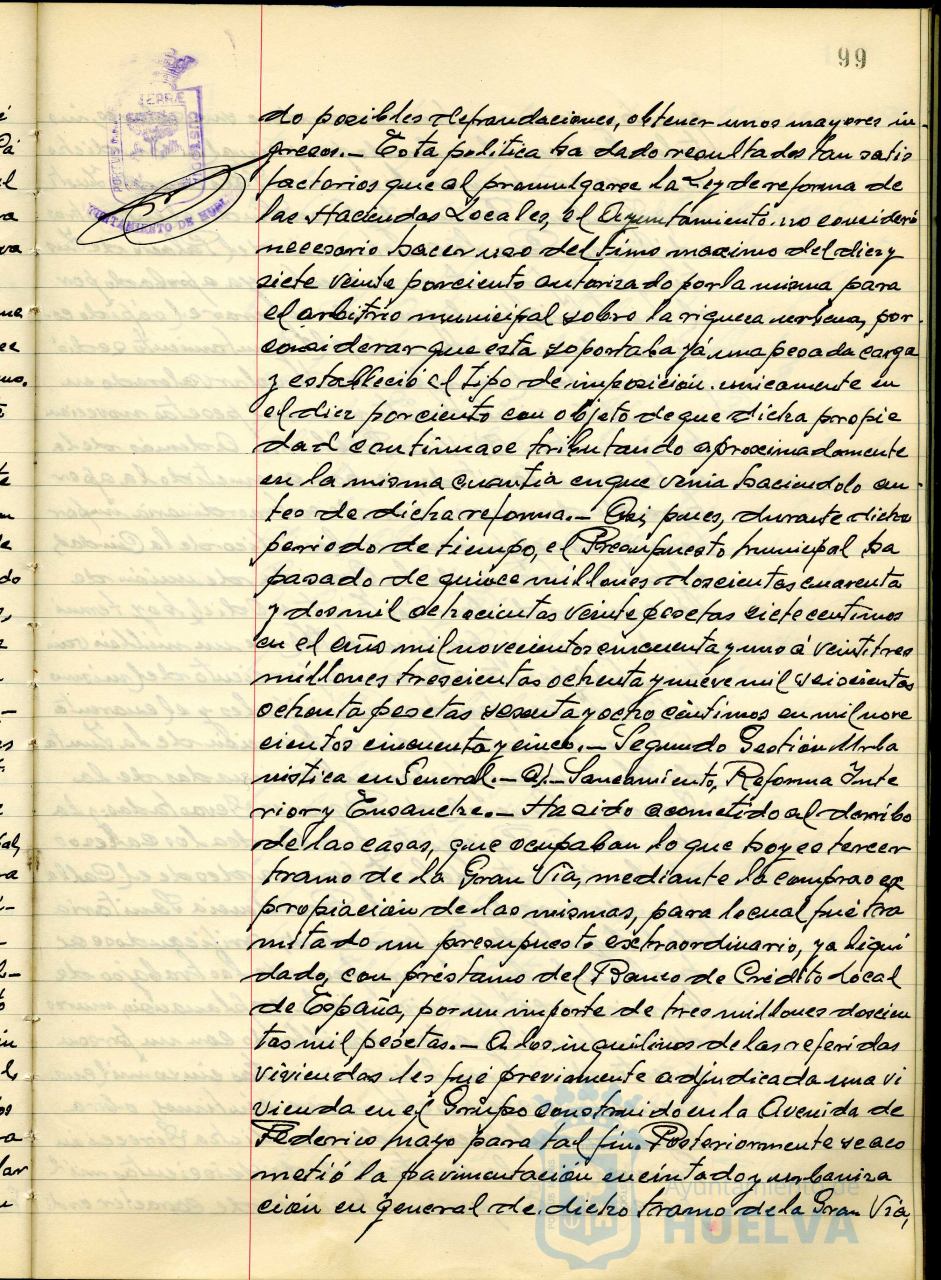 99
do posibles defraudaciones, obtener unos mayores in-
gresos.- Esta politica ha dado resultados tan satis
factorios que al promulgarse la Ley de reforma de
las Haciendas Locales, el Ayuntamiento no consideró
necesario hacer uso del timo maximo del diez y
siete veinte por ciento autorizado por la misma para
el arbitrio municipal sobre la riqueza urbana, por
considerar que esta soportaba yá una pesada carga
y estableció el tipo de imposición unicamente en
el diez por ciento con objeto de que dicha propie
dad continuase tributando aproximadamente
en la misma cuantia en que venia haciendolo an-
tes de dicha reforma.- Asi, pues, durante dicho
periodo de tiempo, el Presupuesto municipal ha
pasado de quince millones doscientas cuarenta
y dos mil ochocientas veinte pesetas siete centimos
en el año mil novecientos cincuenta y uno á veintitres
millones trescientas ochenta y nueve mil seiscientas
ochenta pesetas sesenta y ocho céntimos en mil nove
cientos cincuenta y cinco.- Segundo Gestión Urba
nistica en General.- a).- Saneamiento, Reforma Inte
rior y Ensanche.- Ha sido acometido al derribo
de las casas, que ocupaban lo que hoy es tercer
tramo de la Gran Via, mediante la compra o ex
propiación de las mismas, para lo cual fué tra
mitado un presupuesto extraordinario, ya liqui
dado, con préstamo del Banco de Crédito Local
de España, por un importe de tres millones doscien
tas mil pesetas.- A los inquilinos de las referidas
viviendas les fué previamente adjudicada una vi
vienda en el Grupo construido en la Avenida de
Federico Mayo para tal fin. Posteriormente se aco
metió la pavimentación encintado y urbaniza
ción en general de dicho tramo de la Gran Via,
Ayuntamiento de
HUELVA